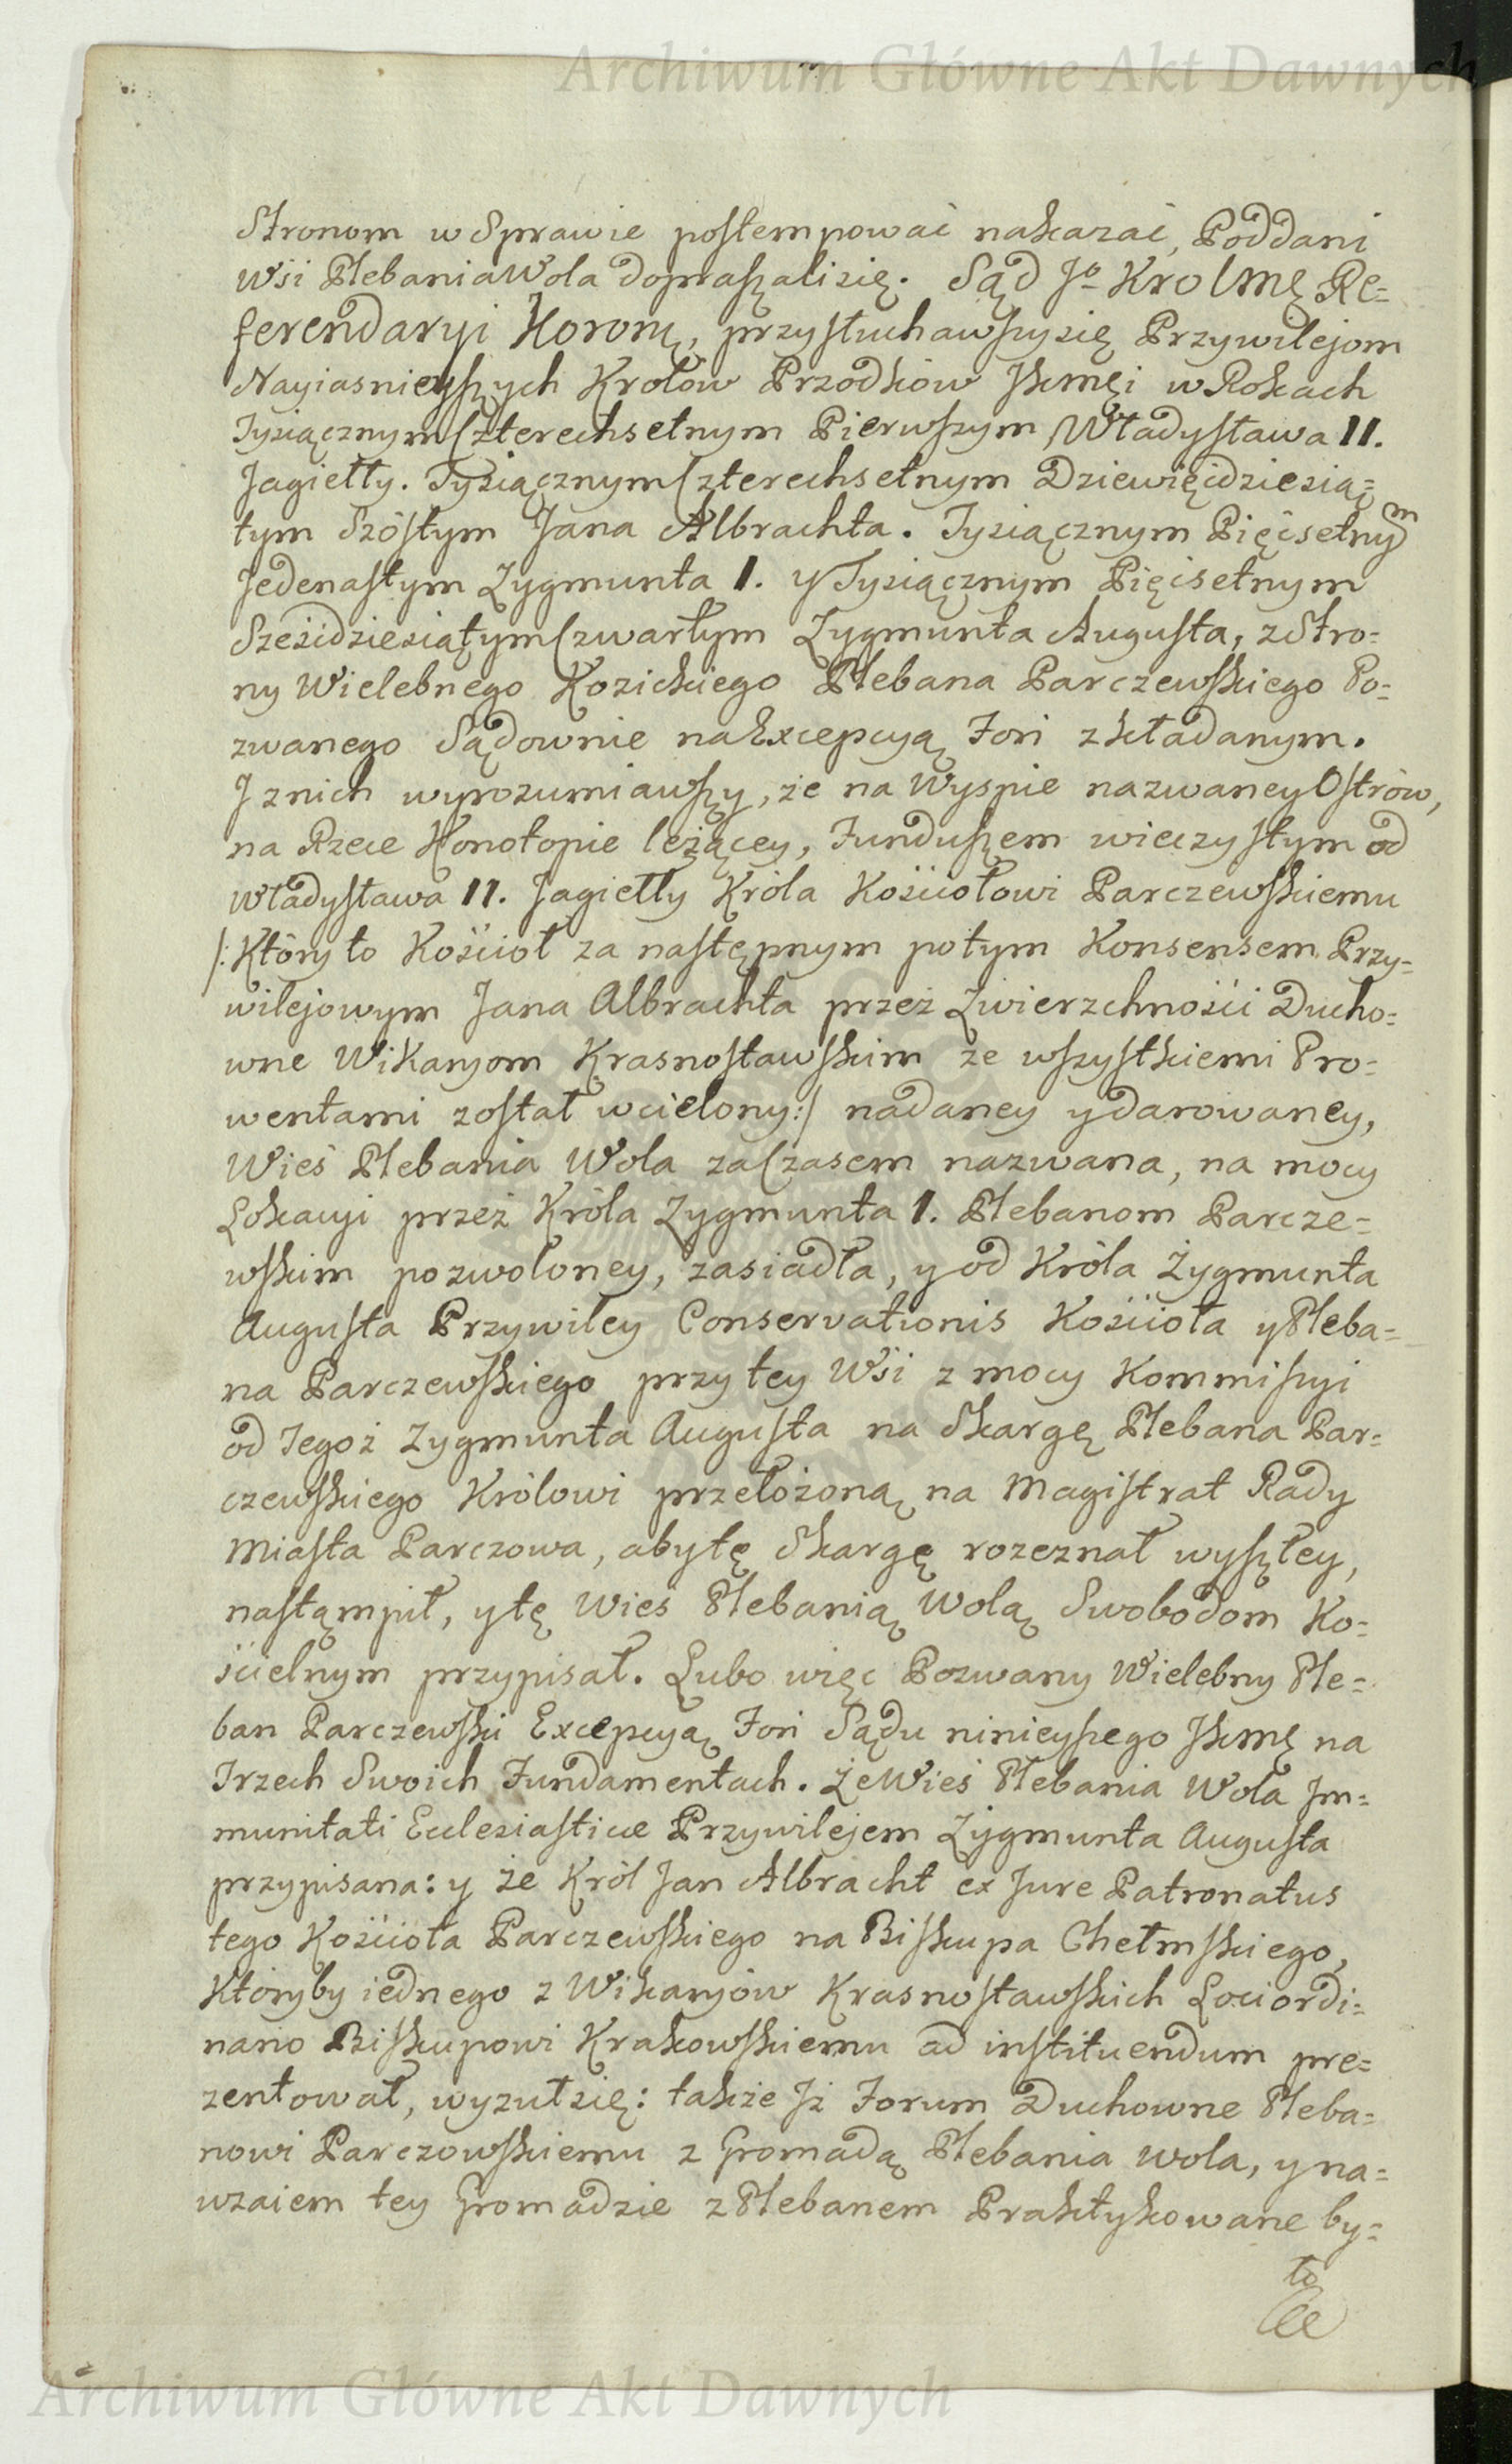 Archiwum Główne Akt Dawnych
Stronom w Sprawie postempować nakazać, Poddani
Wsi Plebania Wola dopraszali się. Sąd Jo Krolmę Re=
ferendaryi Koronę, przysłuchawszy się Przywilejom
Nayiasnieyszych Krolow Przodków Jkmci w Rokach
Tysiącznym Czterechsetnym Pierwszym Władysława II.
Jagiełły. Tysiącznym Czterechsetnym Dziewięćdziesią=
tym Szóstym Jana Albrachta. Tysiącznym Pięćsetnym
Jedenastym Zygmunta I. y Tysiącznym Pięćsetnym
Sześćdziesiątym Czwartym Zygmunta Augusta, z Stro=
ny Wielebnego Kozickiego Plebana Parczewskiego Po=
zwanego Sądownie na Excepcyą Fori zkładanym.
J znich wyrozumiawszy, że na Wyspie nazwaney Ostrów,
na Rzece Konotopie leżącey, Funduszem wieczystym od
Władysława II. Jagiełły Króla Kościołowi Parczewskiemu
/: Który to Kościoł za następnym potym Konsensem Przy=
wilejowym Jana Albrachta przez Zwierzchności Ducho=
wne Wikaryom Krasnostawskim ze wszystkiemi Pro=
wentami został wcielony :/ nadaney y darowaney,
Wieś Plebania Wola za Czasem nazwana, na mocy
Lokacyi przez Króla Zygmunta I. Plebanom Parcze=
wskim pozwoloney, zasiadła, y od Króla Zygmunta
Augusta Przywiley Conservationis Kościoła y Pleba=
na Parczewskiego przy tey Wsi z mocy Kommissyi
od Tegoż Zygmunta Augusta na Skargę Plebana Par=
czewskiego Królowi przełożoną na Magistrat Rady
Miasta Parczowa, aby tę Skargę rozeznał wyszłey,
nastąmpił, y tę Wies Plebanią Wolą Swobodom Ko=
ścielnym przypisał. Lubo więc Pozwany Wielebny Ple=
ban Parczewski Excepcyą Fori Sądu ninieyszego Jkmę na
Trzech Swoich Fundamentach. Że Wieś Plebania Wola Im=
munitati Ecclesiasticæ Przywilejem Zygmunta Augusta
przypisana: y że Król Jan Albracht ex Jure Patronatus
tego Kościoła Parczewskiego na Biskupa Chełmskiego,
Któryby iednego z Wikaryów Krasnostawskich Loci ordi=
nario Biskupowi Krakowskiemu ad instituendum pre=
zentował, wyzuł się: także Jż Forum Duchowne Pleba=
nowi Parczowskiemu z Gromadą Plebania Wola, y na=
wzaiem tey Gromadzie z Plebanem Praktykowane by=
ło
Archiwum Główne Akt Dawnych